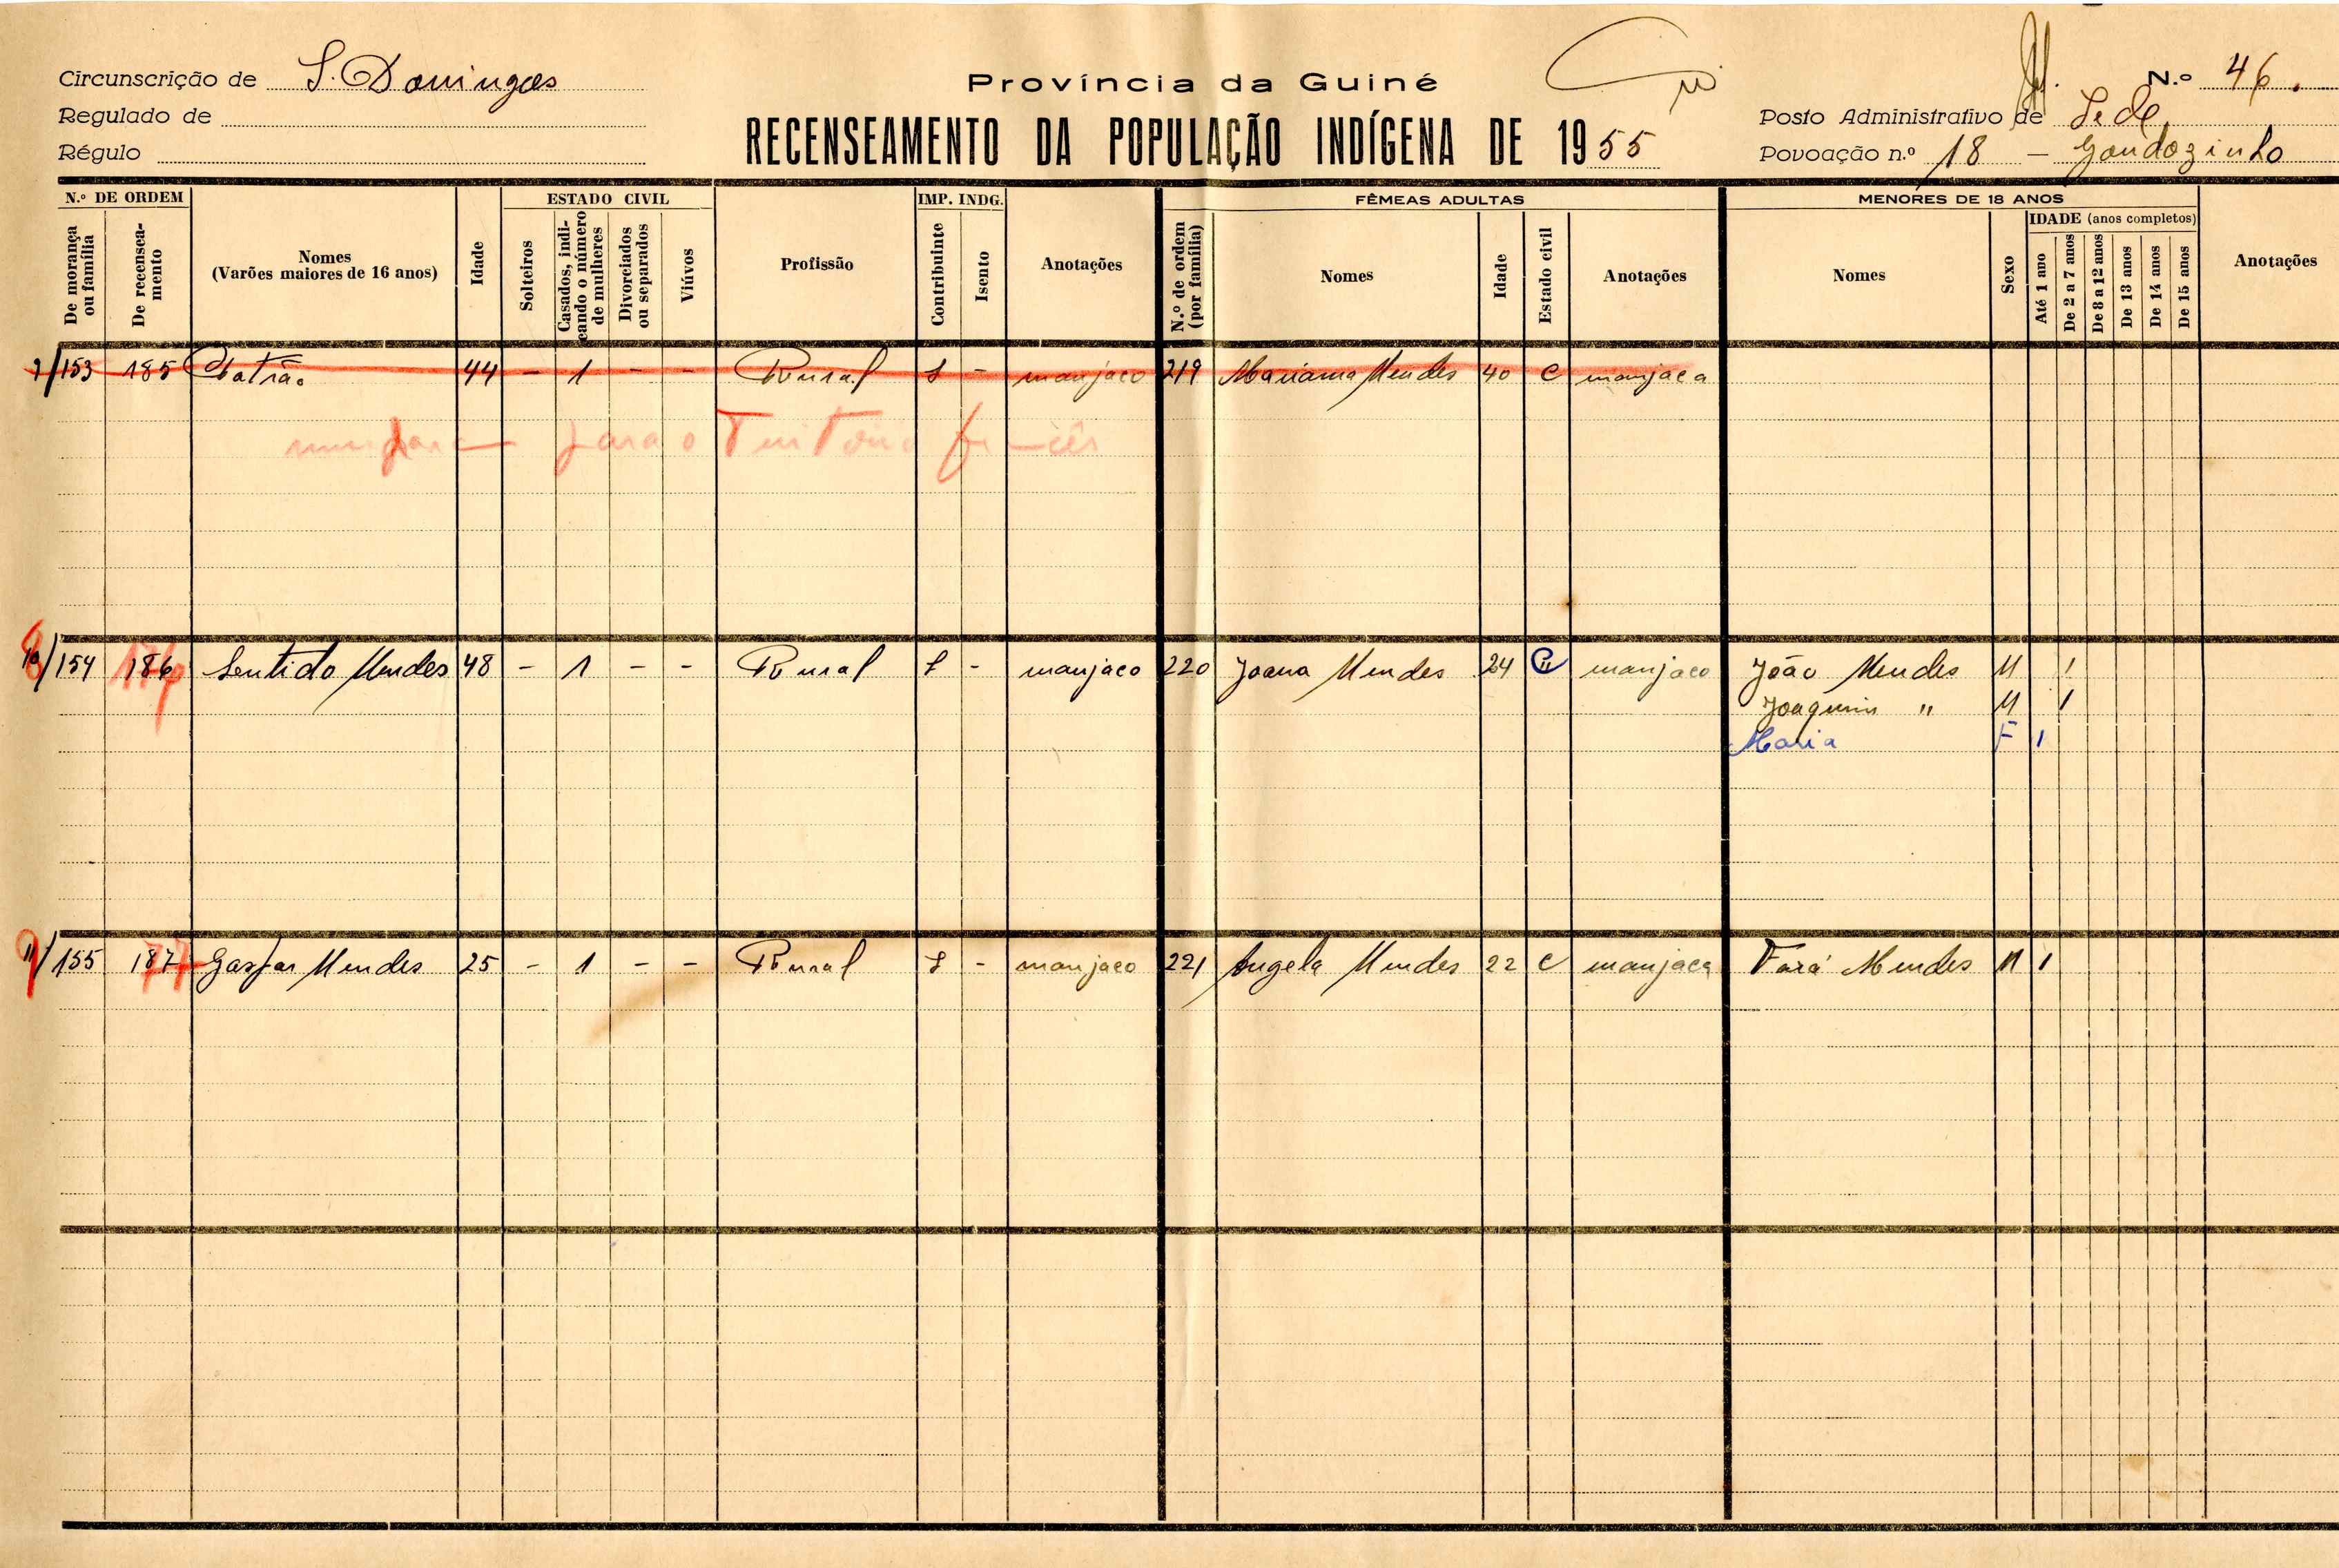 Circunscrição de S. Domingos
Província da Guiné
N.º 46.
Regulado de
Posto Administrativo de Sede
Régulo
RECENSEAMENTO DA POPULAÇÃO INDÍGENA DE 1955
Povoação n.º 18 - Gandozinho
N.º DE ORDEM
ESTADO CIVIL
IMP. INDG.
FÊMEAS ADULTAS
MENORES DE 18 ANOS
De morança ou família
De recensea-mento
Nomes
(Varões maiores de 16 anos)
Idade
Solteiros
Casados, indi-cando o número de mulheres
Divorciados ou separados
Viúvos
Profissão
Contribuinte
Isento
Anotações
N.º de ordem (por família)
Nomes
Idade
Estado civil
Anotações
Nomes
Sexo
IDADE (anos completos)
Até 1 ano
De 2 a 7 anos
De 8 a 12 anos
De 13 anos
De 14 anos
De 15 anos
Anotações
/153 185 Patrão 44 - 1 - - Rural S - manjaco 219 Mariama Mendes 40 C manjaca
para o Território francês
10/154 186 Sentido Mendes 48 - 1 - - Rural S - manjaco 220 Joana Mendes 24 manjaco João Mendes M 1
Joaquim " M 1
Maria F 1
11/155 187 Gaspar Mendes 25 - 1 - - Rural S - manjaco 221 Angela Mendes 22 C manjaca Fará Mendes M 1